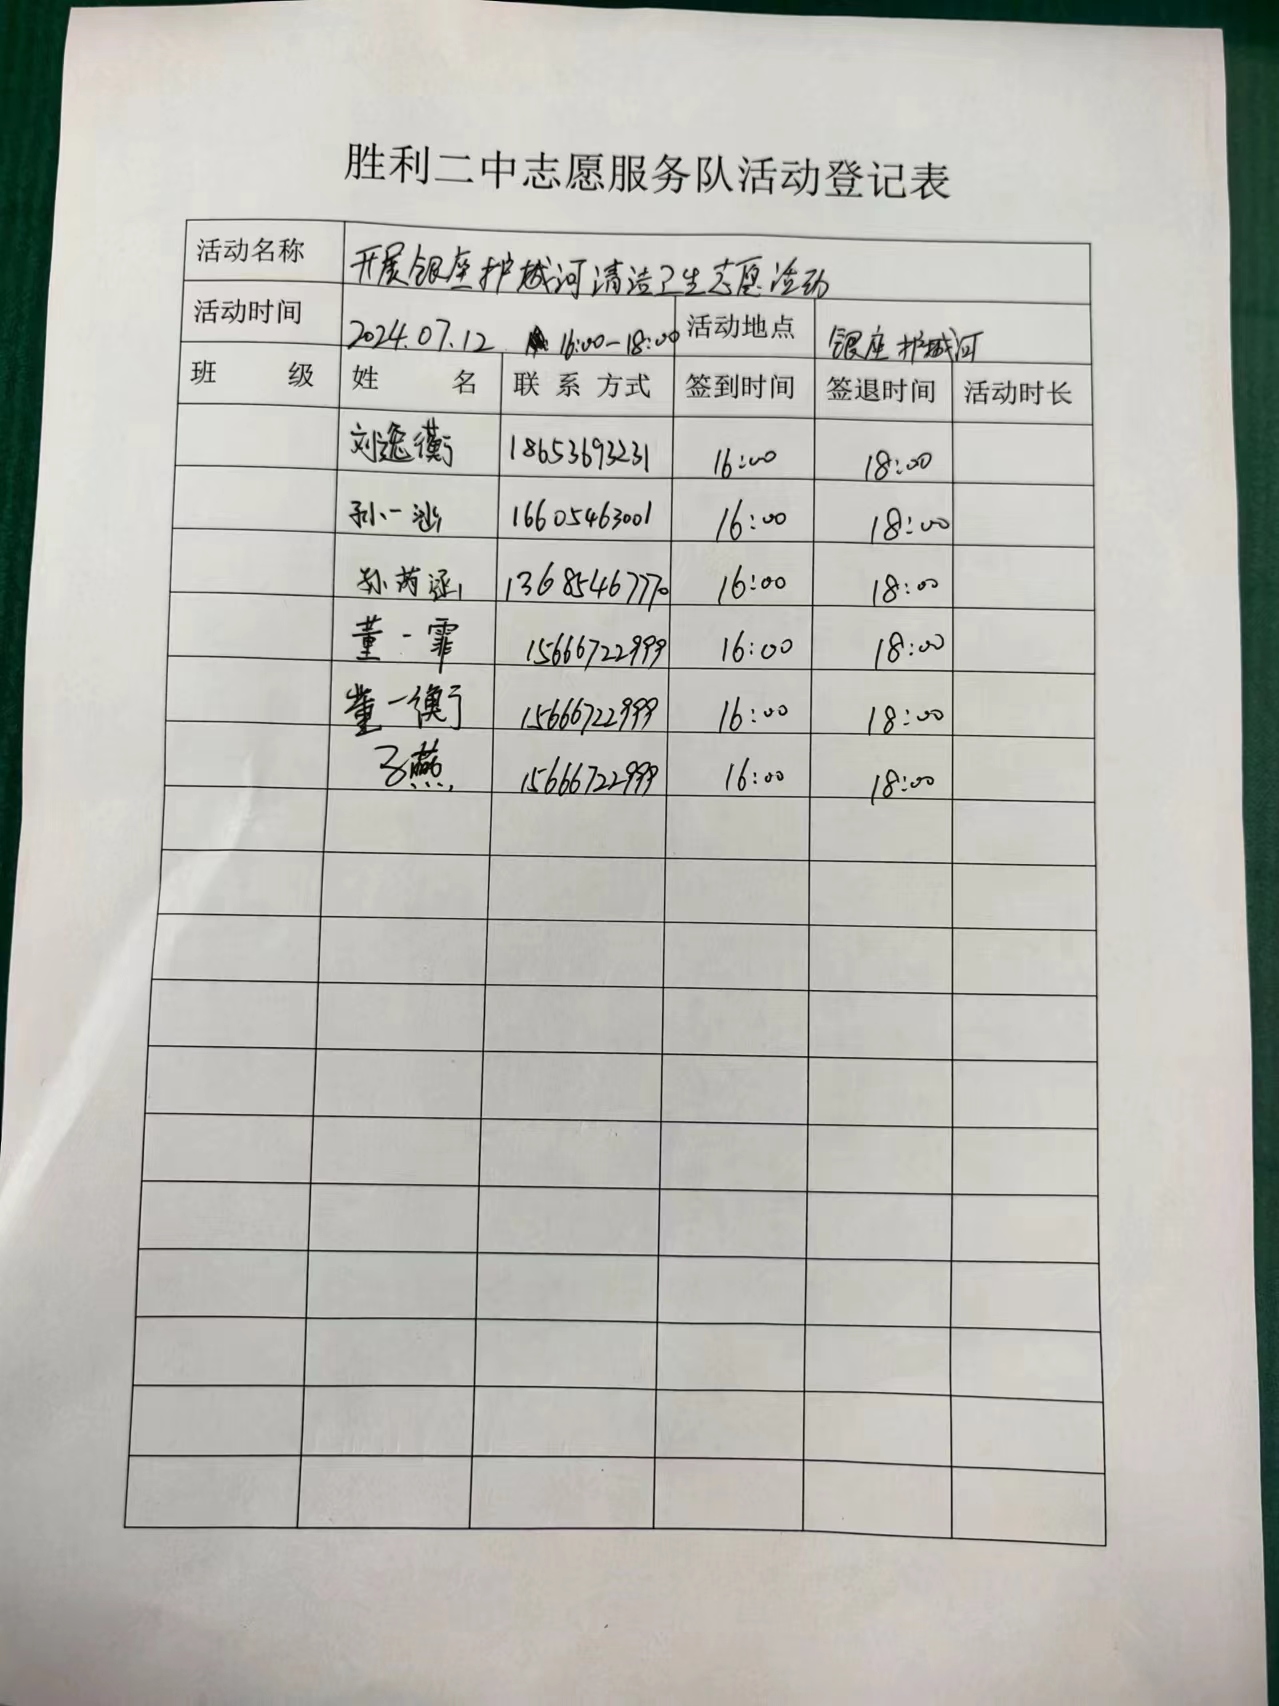 胜利二中志愿服务队活动登记表
活动名称 开展银座护城河清洁卫生志愿活动
活动时间 2024.07.12 16:00-18:00 活动地点 银座护城河
班 级 姓 名 联系方式 签到时间 签退时间 活动时长
刘逸衡 18653693231 16:00 18:00
孙一 16605463001 16:00 18:00
孙芮涵 13685467770 16:00 18:00
董一霏 15666722999 16:00 18:00
董一衡 15666722999 16:00 18:00
燕 15666722999 16:00 18:00